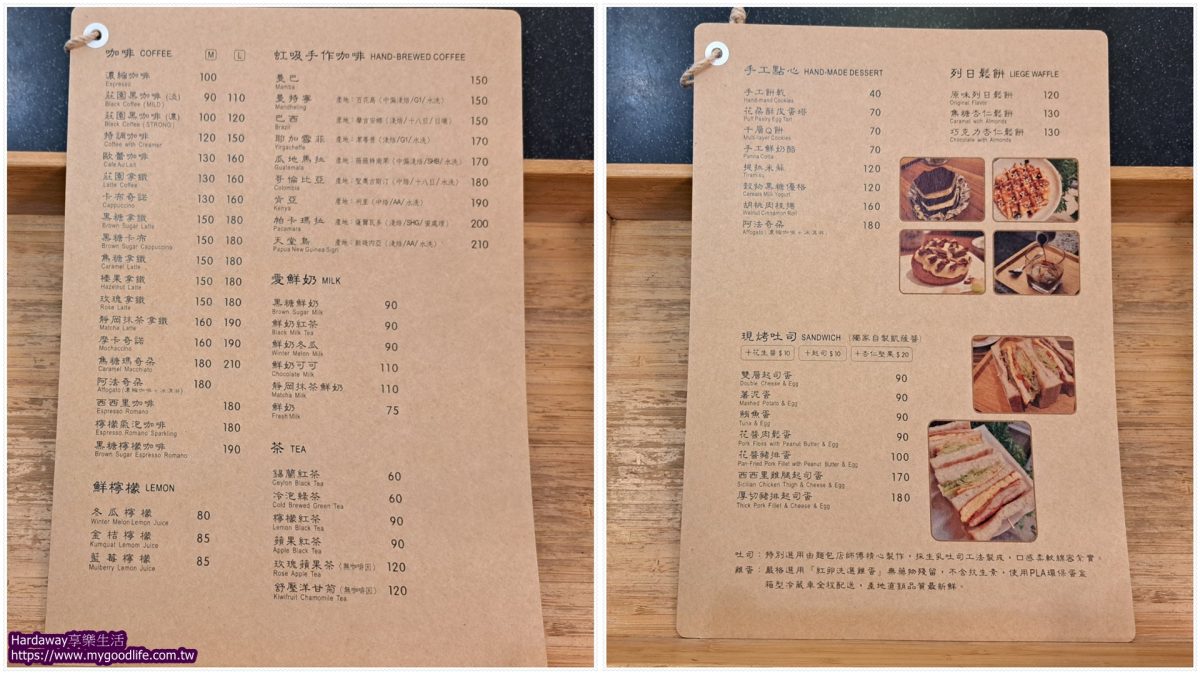 咖啡 COFFEE M L
濃縮咖啡 100
Espresso
莊園黑咖啡(淡) 90 110
Black Coffee (MILD)
莊園黑咖啡(濃) 100 120
Black Coffee (STRONG)
特調咖啡 120 150
Coffee with Creamer
歐蕾咖啡 130 160
Cafe Au Lait
莊園拿鐵 130 160
Latte Coffee
卡布奇諾 130 160
Cappuccino
黑糖拿鐵 150 180
Brown Sugar Latte
黑糖卡布 150 180
Brown Sugar Cappuccina
焦糖拿鐵 150 180
Caramel Latte
榛果拿鐵 150 180
Hazelnut Latte
玫瑰拿鐵 150 180
Rose Latte
靜岡抹茶拿鐵 160 190
Matcha Latte
摩卡奇諾 160 190
Mochaccino
焦糖瑪奇朵 180 210
Caramel Macchiato
阿法奇朵 180
Affogato(濃縮咖啡+冰淇淋)
西西里咖啡 180
Espresso Romano
檸檬氣泡咖啡 180
Espresso Romano Sparkling
黑糖檸檬咖啡 190
Brown Sugar Espresso Romano
鮮檸檬 LEMON
冬瓜檸檬 80
Winter Melon Lemon Juice
金桔檸檬 85
Kumquat Lemom Juice
藍莓檸檬 85
Mulberry Lemon Juice
虹吸手作咖啡 HAND-BREWED COFFEE
曼巴 150
Mamba
曼特寧 產地:百花島(中偏淺焙/G1/水洗) 150
Mandheling
巴西 產地:摩吉安娜(淺焙/十八目/日曬) 150
Brazil
耶加雪菲 產地:潔蒂普(淺焙/G1/水洗) 170
Yirgacheffe
瓜地馬拉 產地:薇薇特南果(中偏淺焙/SHB/水洗) 170
Guatemala
哥倫比亞 產地:聖奧古斯汀(中焙/十八目/水洗) 180
Colombia
肯亞 產地:列里(中焙/AA/水洗) 190
Kenya
帕卡瑪拉 產地:薩爾瓦多(淺焙/SHG/蜜處理) 200
Pacamara
天堂鳥 (淺焙/AA/水洗) 210
Papua New Guinea Sigri
愛鮮奶 MILK
黑糖鮮奶 90
Brown Sugar Milk
鮮奶紅茶 90
Black Milk Tea
鮮奶冬瓜 90
Winter Melon Milk
鮮奶可可 110
Chocolate Milk
靜岡抹茶鮮奶 110
Matcha Milk
鮮奶 75
Fresh Milk
茶 TEA
錫蘭紅茶 60
Ceylon Black Tea
冷泡綠茶 60
Cold Brewed Green Tea
檸檬紅茶 90
Lemon Black Tea
蘋果紅茶 90
Apple Black Tea
玫瑰蘋果茶(無咖啡因) 120
Rose Apple Tea
舒壓洋甘菊(無咖啡因) 120
Kiwifruit Chamomile Tea
Hardaway享樂生活
https://www.mygoodlife.com.tw
手工點心 HAND-MADE DESSERT
手工餅乾 40
Hand-mand Cookies
花朵酥皮蛋塔 70
Puff Pastry Egg Tart
千層Q餅 70
Multi-layer Cookies
手工鮮奶酪 70
Panna Cotta
提拉米蘇 120
Tiramisu
穀物黑糖優格 120
Cereals Milk Yogurt
胡桃肉桂捲 160
Walnut Cinnamon Roll
阿法奇朵 180
Affogato(濃縮咖啡+冰淇淋)
列日鬆餅 LIEGE WAFFLE
原味列日鬆餅 120
Original Flavor
焦糖杏仁鬆餅 130
Caramel with Almonds
巧克力杏仁鬆餅 130
Chocolate with Almonds
現烤吐司 SANDWICH (獨家自製凱薩醬)
+花生醬$10 +起司$10 +杏仁堅果$20
雙層起司蛋 90
Double Cheese & Egg
薯泥蛋 90
Mashed Potato & Egg
鮪魚蛋 90
Tuna & Egg
花醬肉鬆蛋 90
Pork Floss with Peanut Butter & Egg
花醬豬排蛋 100
Pan-Fried Pork Fillet with Peanut Butter & Egg
西西里雞腿起司蛋 170
Sicilian Chicken Thigh & Cheese & Egg
厚切豬排起司蛋 180
Thick Pork Fillet & Cheese & Egg
吐司:特別選用由麵包店師傅精心製作,採生乳吐司工法製成,口感柔軟綿密紮實。
雞蛋:嚴格選用「紅卵洗選雞蛋」無藥物殘留,不含抗生素,使用PLA環保蛋盒
箱型冷藏車全程配送,產地直銷品質最新鮮。